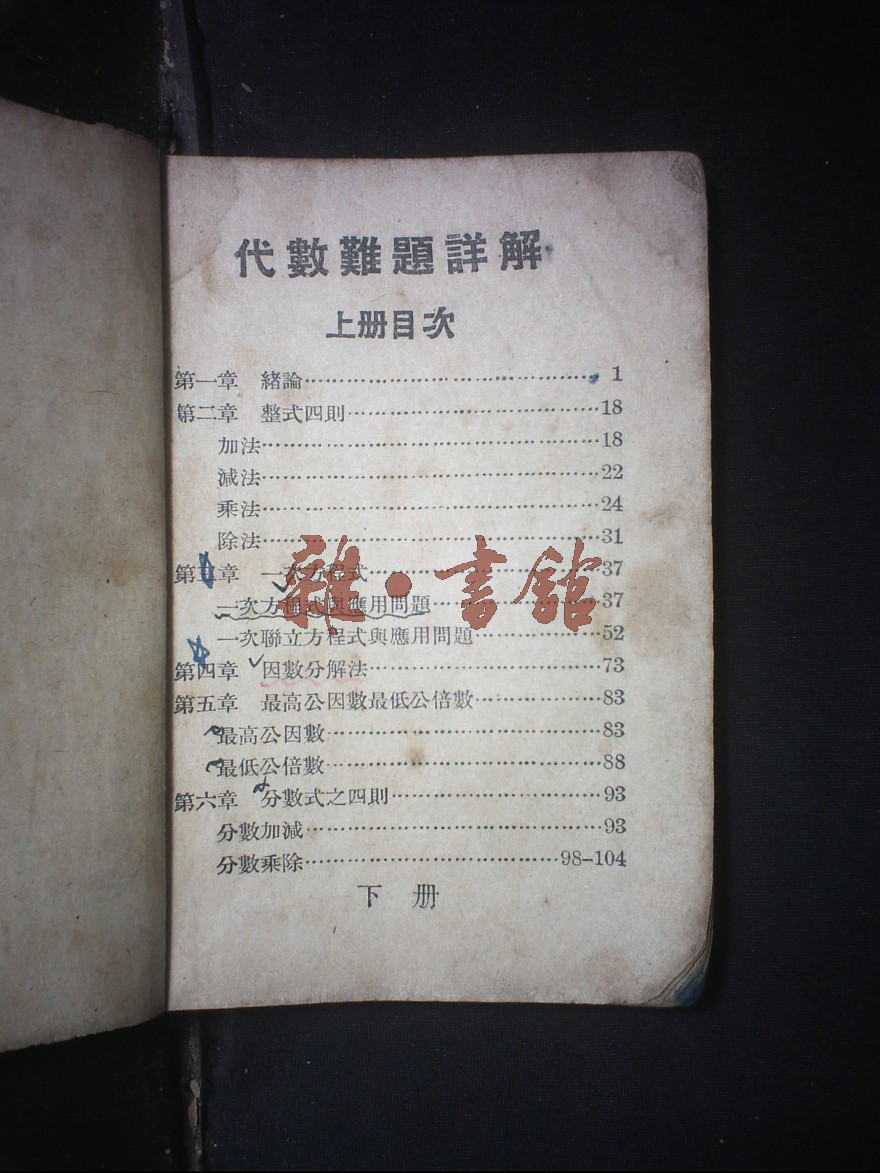 代數難題詳解
上册目次
第一章 緒論……………………………………1
第二章 整式四則………………………………18
加法……………………………………………18
減法……………………………………………22
乘法……………………………………………24
除法……………………………………………31
第三章 一次方程式……………………………37
一次方程式與應用問題………………………37
一次聯立方程式與應用問題…………………52
第四章 因數分解法……………………………73
第五章 最高公因數最低公倍數………………83
最高公因數……………………………………83
最低公倍數……………………………………88
第六章 分數式之四則…………………………93
分數加減………………………………………93
分數乘除………………………………98-104
下册
雜·書館